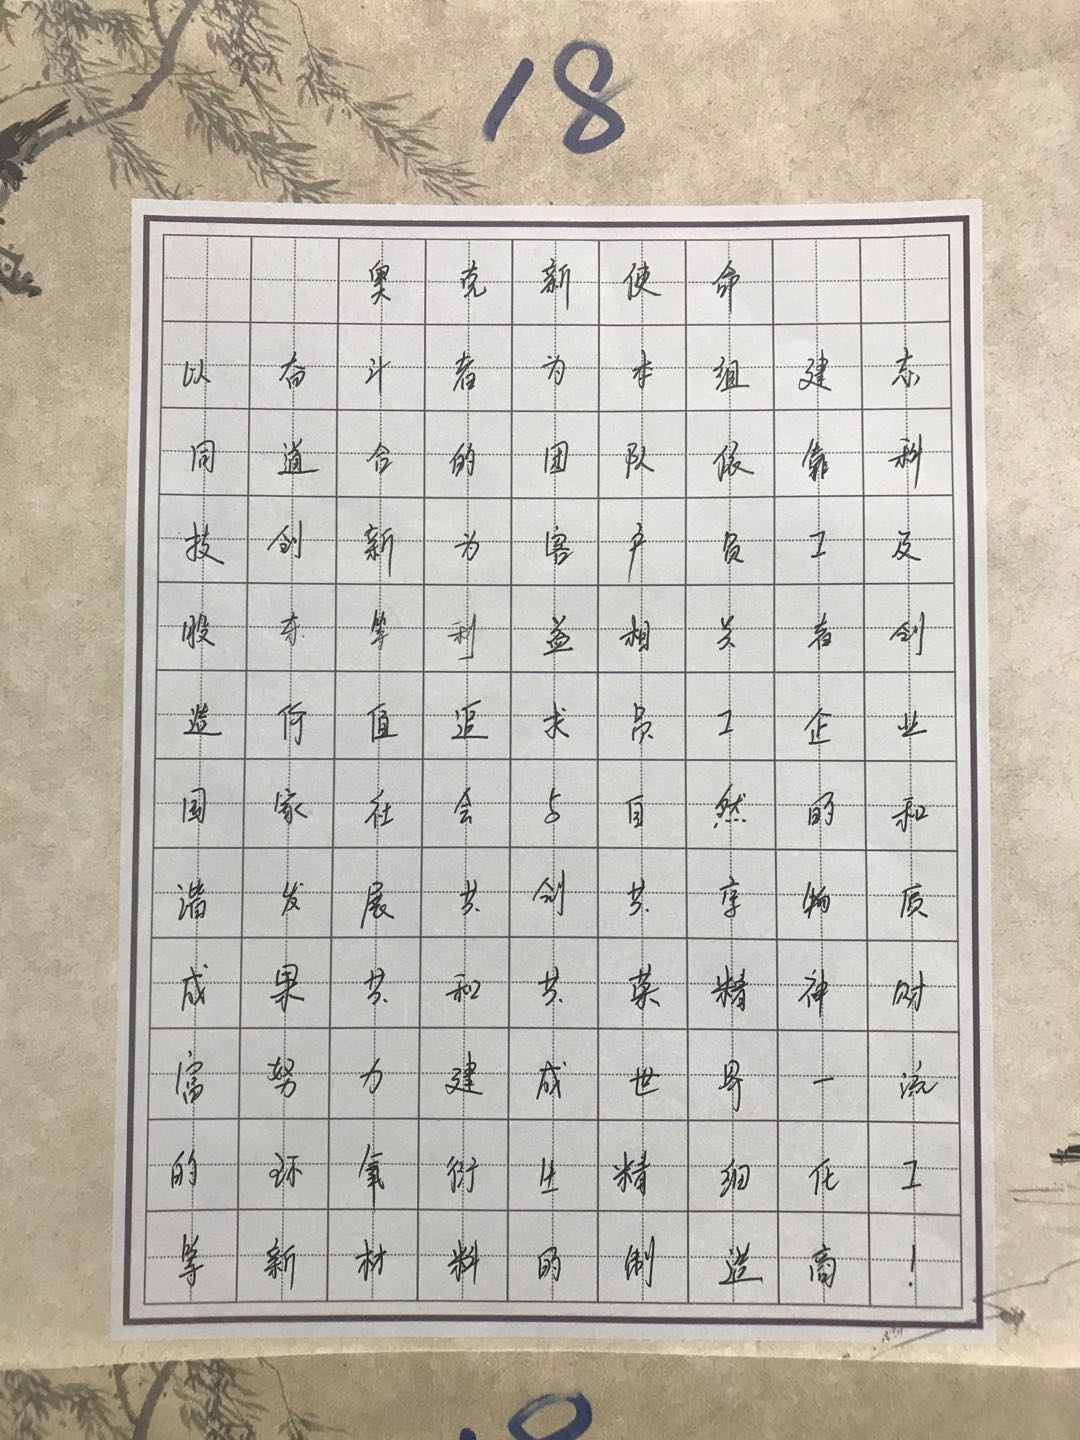 18
奥克新使命
以奋斗者为本组建东
同道合的团队依靠科
技创新为客户员工及
股东等利益相关者创
造价值追求员工企业
国家社会与自然的和
谐发展共创共享物质
成果共和共荣精神财
富努力建成世界一流
的环氧衍生精细化工
等新材料的制造商！